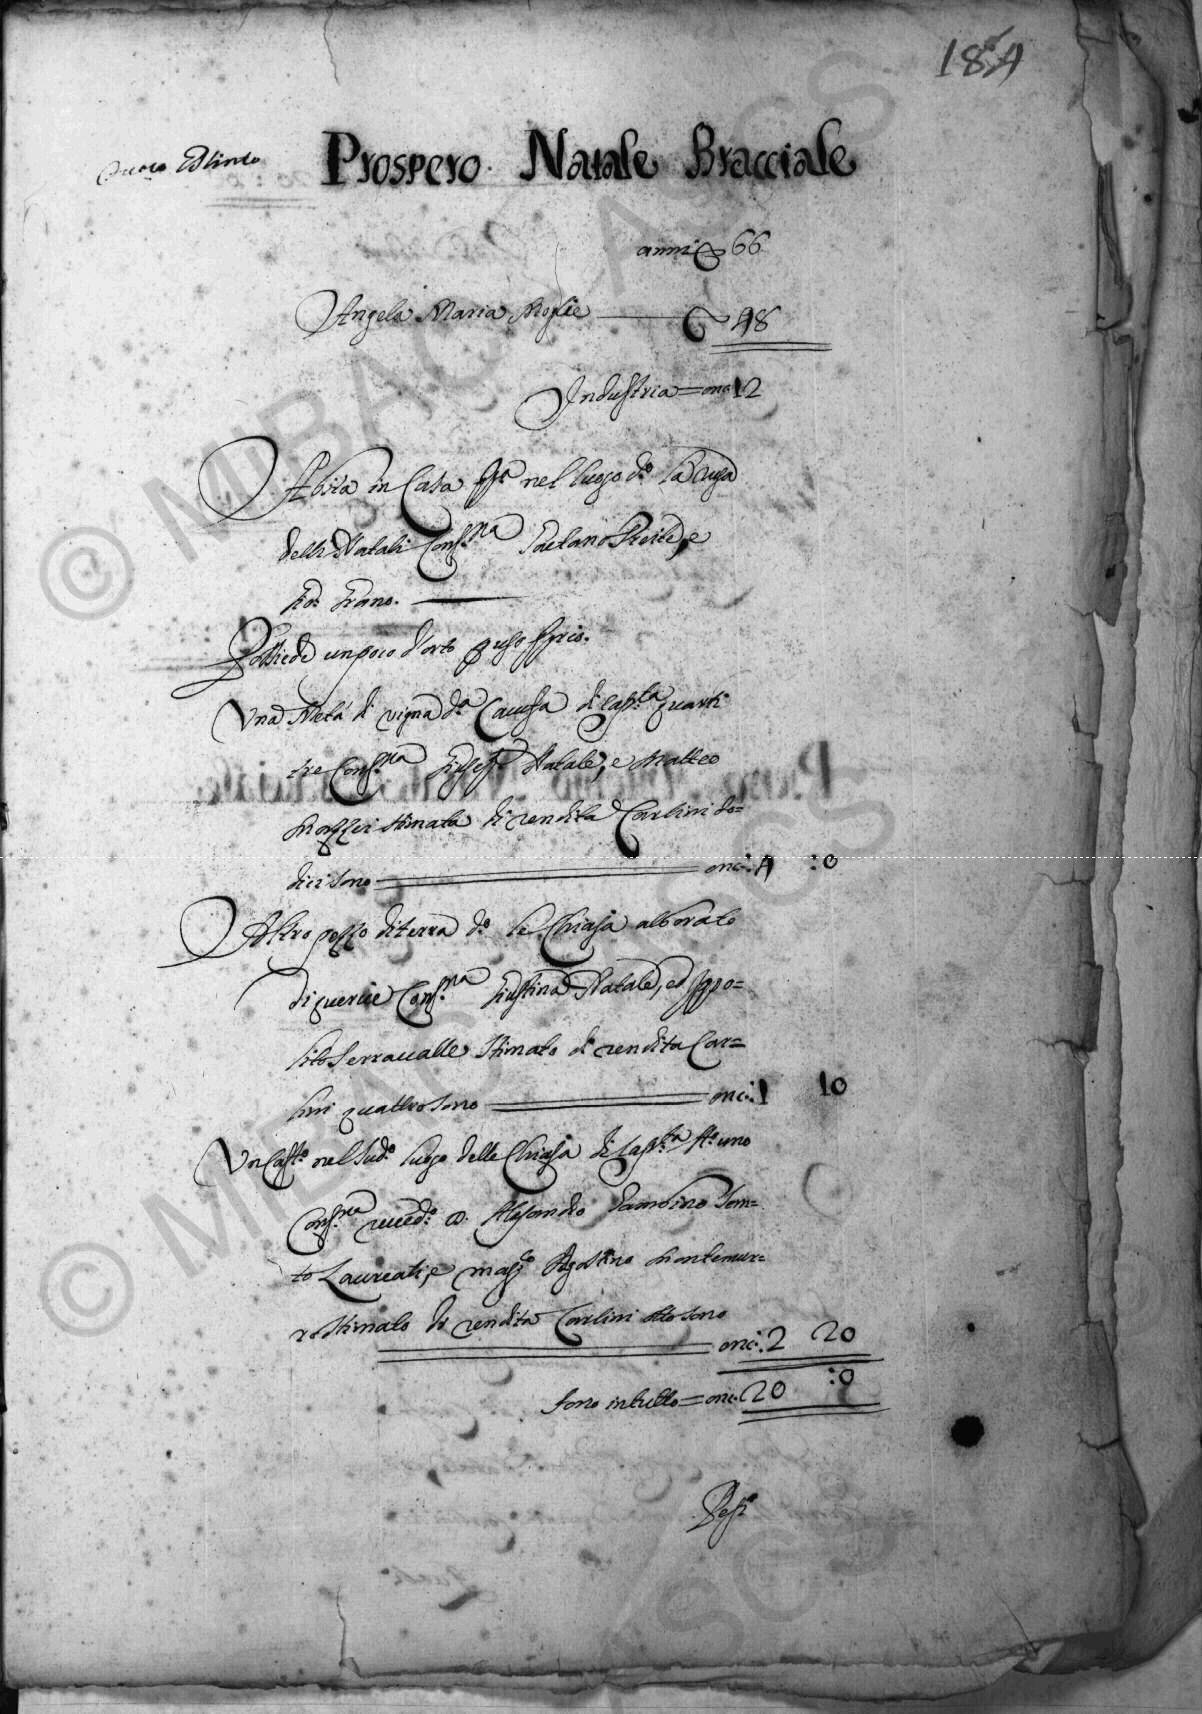 184
Fuoco Estinto
Prospero Natale Bracciale
anni 66
Angela Maria Moglie 48
Industria = onc: 12
Abita in Casa ppa nel luogo do la Ruga
delli Natali Conf.na Gaetano e
Possiede un poco d'orto p uso pprio.
Una Metà di vigna da di cap.ta quarti
tre Conf.na Giusep.e Natale, e Matteo
stimata di rendita Carlini do=
dici sono onc: 4 :0
Altro pezzo di terra do le Chiasa alborato
di querce Conf.na Giustina Natale, ed Ippo=
lito Serravalle Stimato di rendita Car=
lini quattro sono onc: 1 10
Un Casto nel sudo luogo delle Chiasa di cap.ta uno
Conf.na revedo D. Alesandro Sambiase Sem=
to Laureati, e mago Agostino Montemur=
ro Stimato di rendita Carlini Otto sono
onc: 2 20
Sono in tutto = onc: 20 :0
Pesi
© MIBAC ASCS
© MIBAC ASCS
ASCS